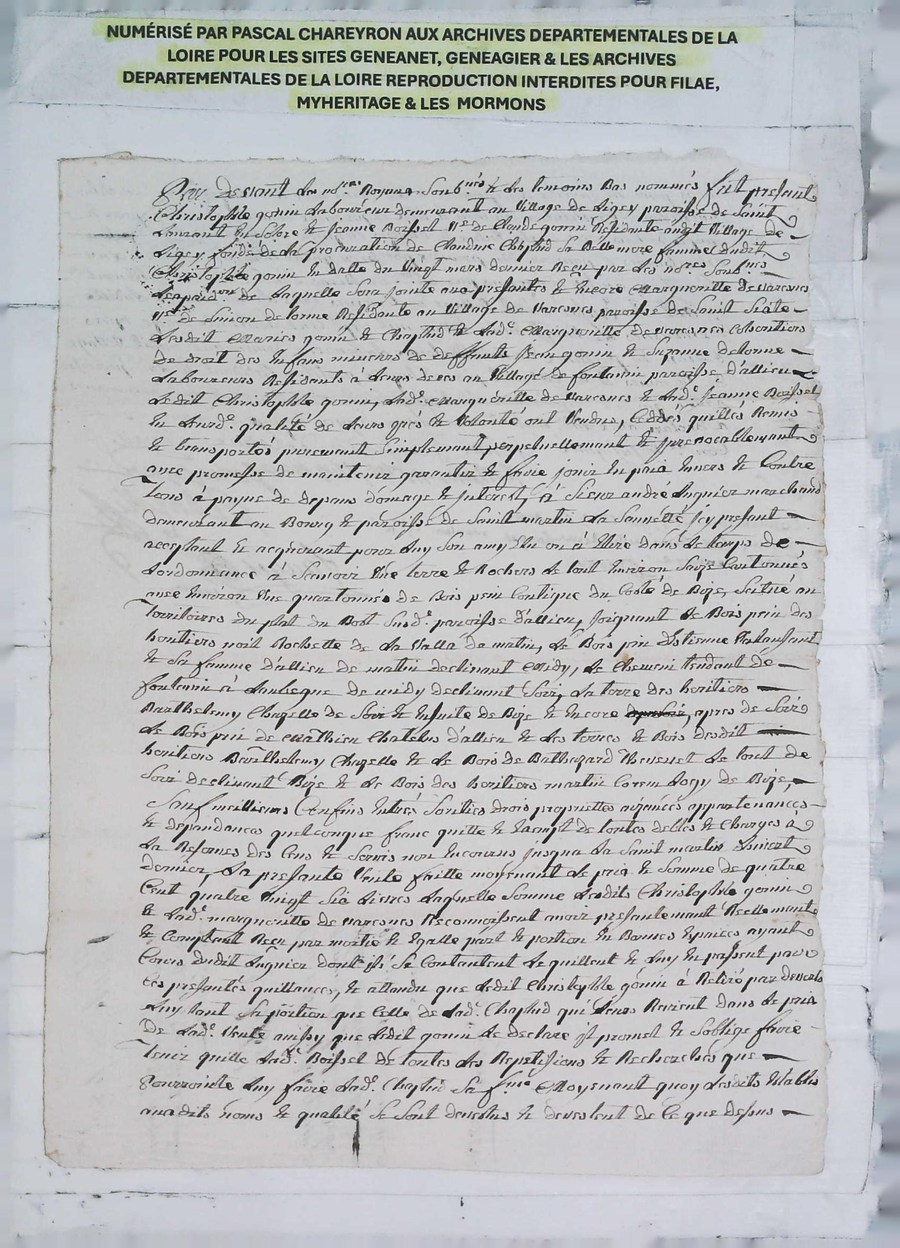 NUMÉRISÉ PAR PASCAL CHAREYRON AUX ARCHIVES DEPARTEMENTALES DE LA
LOIRE POUR LES SITES GENEANET, GENEAGIER & LES ARCHIVES
DEPARTEMENTALES DE LA LOIRE REPRODUCTION INTERDITES POUR FILAE,
MYHERITAGE & LES MORMONS
Par devant les no.res Royaux soub.nés & les temoins bas nommés fut present
Christophle gonin laboureur demeurant au village de paroisse de Saint
& Jeanne Boisset v.e de Claude gonin Residante audit village de
fondé de la procuration de Claudine Chaptud sa Belle mere femme dudit
Christophle gonin en datte du vingt mars dernier Reçu par les no.res soub.nés
de laquelle sera jointe aux presantes & encore Margueritte de varenne
v.e de Simon delorme Residante au village de paroisse de Saint
lesdit Maries gonin & Chaptud & lad.e Margueritte de
de droit des enfans mineurs de deffunts Jean gonin & Suzanne delorme
laboureurs Residants à leurs deces au village de fontanin paroisse d'allieu
ledit Christophle gonin, lad.e Margueritte de & lad.e Jeanne Boisset
en leurd.e qualité de leurs grés & volonté ont vendus, ceddés quittés Remis
& transportés purement simplement perpetuellement & jrrevocablement
avec promesse de maintenir garantir & faire jouir en paix envers & contre
tous à payne de depans domage & jnterest, à Sieur andré marchand
demeurant au Bourg & paroisse de Saint martin la Sauveté jcy presant
acceptant & acquerant pour luy son amy élu ou à élire dans le temps de
lordonnance à scavoir une terre & Rochers le tout environ
avec environ une quartonnés de Bois pin contigue du coté de Bize, scitué au
territoires du plat du Bost susd.e paroisse d'allieu, joignant le Bois pin des
heritiers noël Rochette de la valla de matin, le Bois pin d'Estienne
& sa femme d'allieu de matin declinant midy, le chemin tendant de
fontanin à de midy declinant soir, la terre des heritiers
Barthelemy Chazelle de soir & ensuite de Bize & encore apres de soir
le Bois pin de Mathieu Chatelus d'allieu & les terres & Bois desdit
heritiers Barthelemy Chazelle & le Bois de Balthazard le tout de
soir declinant Bize & le Bois des heritiers martin de Bize,
Sauf meilleurs Confins entrés sorties drois proprietes aizances appartenances
& dependances quelconque franc quitte & exempt de toutes dettes & charges à
la Reserves des Cens & servis non encourus jusqua la Saint martin
dernier, la presante vente faitte moyenant le prix & somme de quatre
cent quatre vingt six Livres laquelle somme lesdits Christophle gonin
& lad.e margueritte de Reconoissent avoir presantement Reellemant
& comptant Reçu par moitie & egalle part & portion en Bonnes Especes ayant
cours dudit dont ils se contantent le quittent & luy en passent par
ces presantes quittance, & attandu que ledit Christophle gonin à Retiré par devers
luy tant sa portion que celle de lad.e Chaptud qui leurs dans le prix
de lad.e vente ainsy que ledit gonin le declare jl promet & s'oblige faire
tenir quitte lad.e Boisset de toutes les Repetitions & Recherches que
pourrointe luy faire lad.e Chaptud sa f.me Moyenant quoy lesdits
auxdits noms & qualité se sont devestus & devestent de ce que dessus